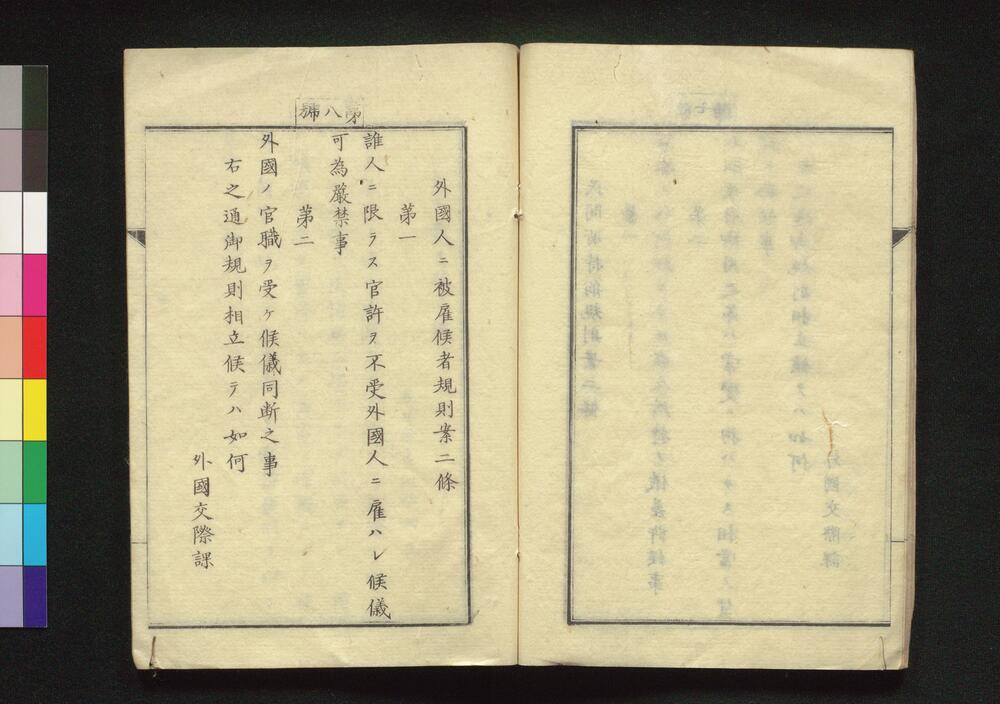 第八號
外國人ニ被雇候者規則案二條
第一
誰人ニ限ラス官許ヲ不受外國人ニ雇ハレ候儀
可為嚴禁事
第二
外國ノ官職ヲ受ケ候儀同斷之事
右之通御規則相立候テハ如何
外國交際課